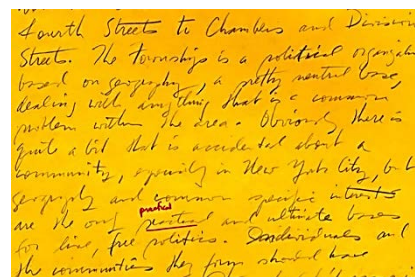 Fourth Streets to Chambers and Division
Streets. The Townships is a political organizat
based on geography, a pretty neutral base,
dealing with anything that is a common
problem within the area. Obviously there is
quite a bit that is accidental about a
community, especially in New York City, but
geography and common specific interests
practical
are the only practical and ultimate bases
for live, free politics. Individuals and
the communities they form should have